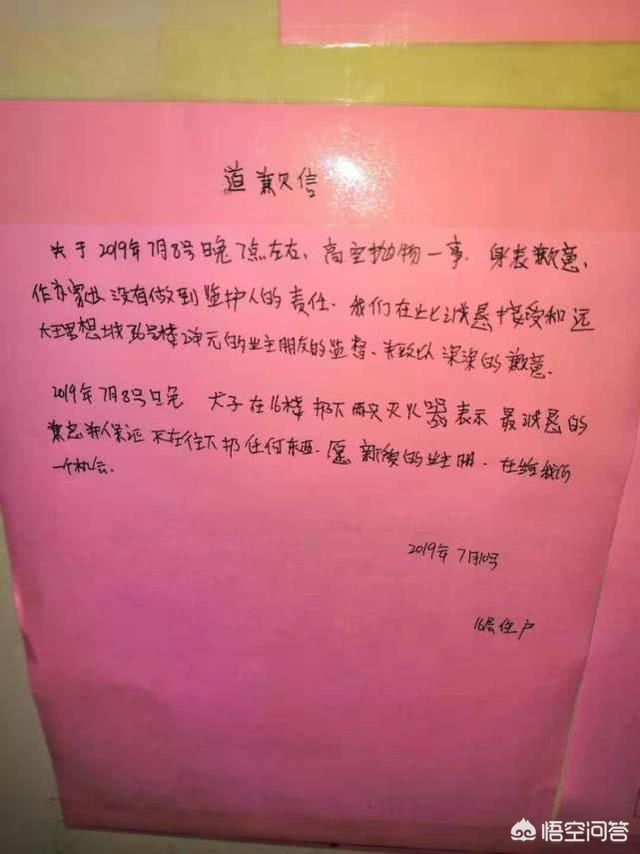 道歉信
关于2019年7月8号日晚7点左右、高空抛物一事. 身表歉意、
作为家出没有做到监护人的责任. 我们在此诚恳接受和远
大理想城36号楼2单元的业主朋友的监督、表致以深深的歉意.
2019年7月8号日晚 犬子在16楼扔下两只灭火器表示最诚恳的
歉意我保证不在往下扔任何东西. 愿 的业主朋. 在给我们
一个机会.
2019年7月10号
16层住户
悟空问答